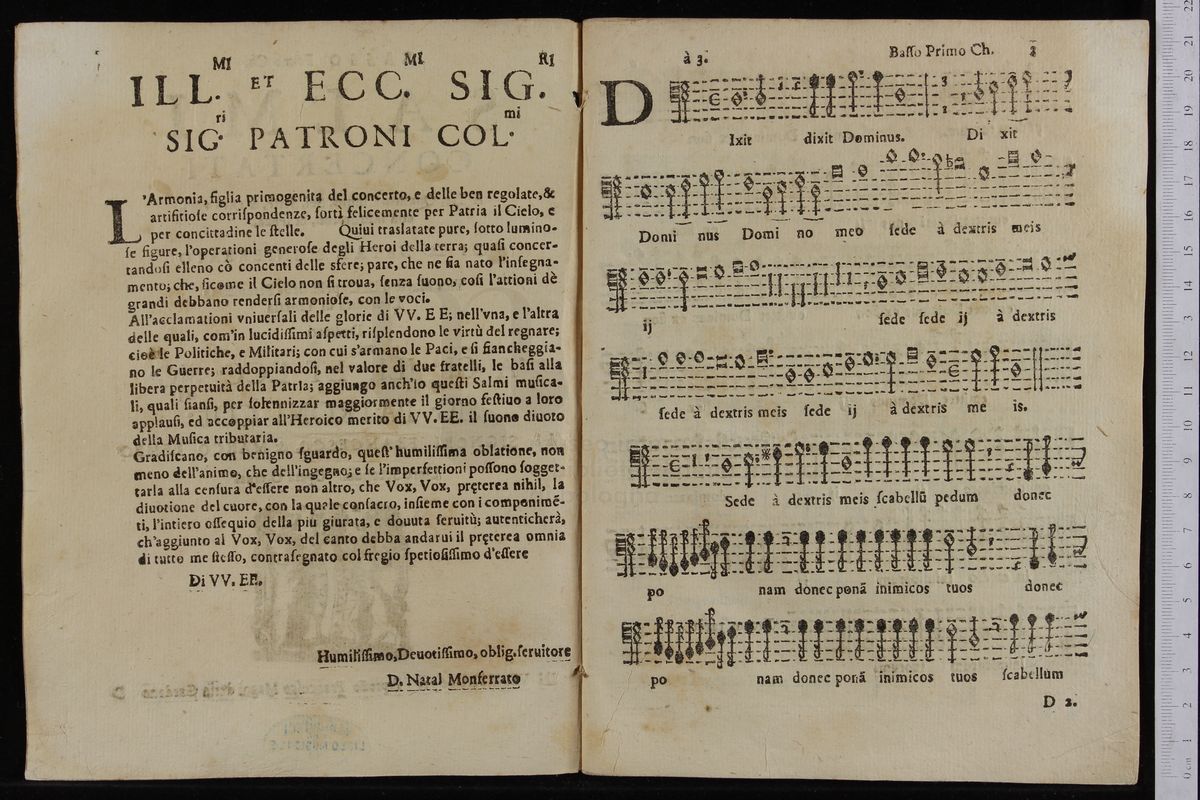 ILL.MI ET ECC.MI SIG.RI
SIG.ri PATRONI COL.mi
L'Armonia, figlia primogenita del concerto, e delle ben regolate, &
artifitiose corrispondenze, sortì felicemente per Patria il Cielo, e
per concittadine le stelle. Quiui traslatate pure, sotto lumino-
se figure, l'operationi generose degli Heroi della terra; quasi concer-
tandosi elleno cò concenti delle sfere; pare, che ne sia nato l'insegna-
mento; che, sicome il Cielo non si troua, senza suono, così l'attioni dè
grandi debbano rendersi armoniose, con le voci.
All'acclamationi vniuersali delle glorie di VV. E E; nell'vna, e l'altra
delle quali, com'in lucidissimi aspetti, risplendono le virtù del regnare;
cioè le Politiche, e Militari; con cui s'armano le Paci, e si fiancheggia-
no le Guerre; raddoppiandosi, nel valore di due fratelli, le basi alla
libera perpetuità della Patria; aggiungo anch'io questi Salmi musica-
li, quali siansi, per solennizzar maggiormente il giorno festiuo a loro
applausi, ed accoppiar all'Heroico merito di VV. EE. il suono diuoto
della Musica tributaria.
Gradiscano, con benigno sguardo, quest' humilissima oblatione, non
meno dell'animo, che dell'ingegno; e se l'imperfettioni possono sogget-
tarla alla censura d'essere non altro, che Vox, Vox, pręterea nihil, la
diuotione del cuore, con la quale consacro, insieme con i componimē-
ti, l'intiero ossequio della più giurata, e douuta seruitù; autenticherà,
ch'aggiunto al Vox, Vox, del canto debba andarui il pręterea omnia
di tutto me stesso, contrasegnato col fregio spetiosissimo d'essere
Di VV. EE.
Humilissimo, Deuotissimo, oblig. seruitore
D. Natal Monferrato
à 3. Basso Primo Ch. 3
DIxit dixit Dominus. Di xit
Domi nus Domi no meo sede à dextris meis
ij sede sede ij à dextris
sede à dextris meis sede ij à dextris me is.
Sede à dextris meis scabellū pedum donec
po nam donec ponā inimicos tuos donec
po nam donec ponā inimicos tuos scabellum
D 2.